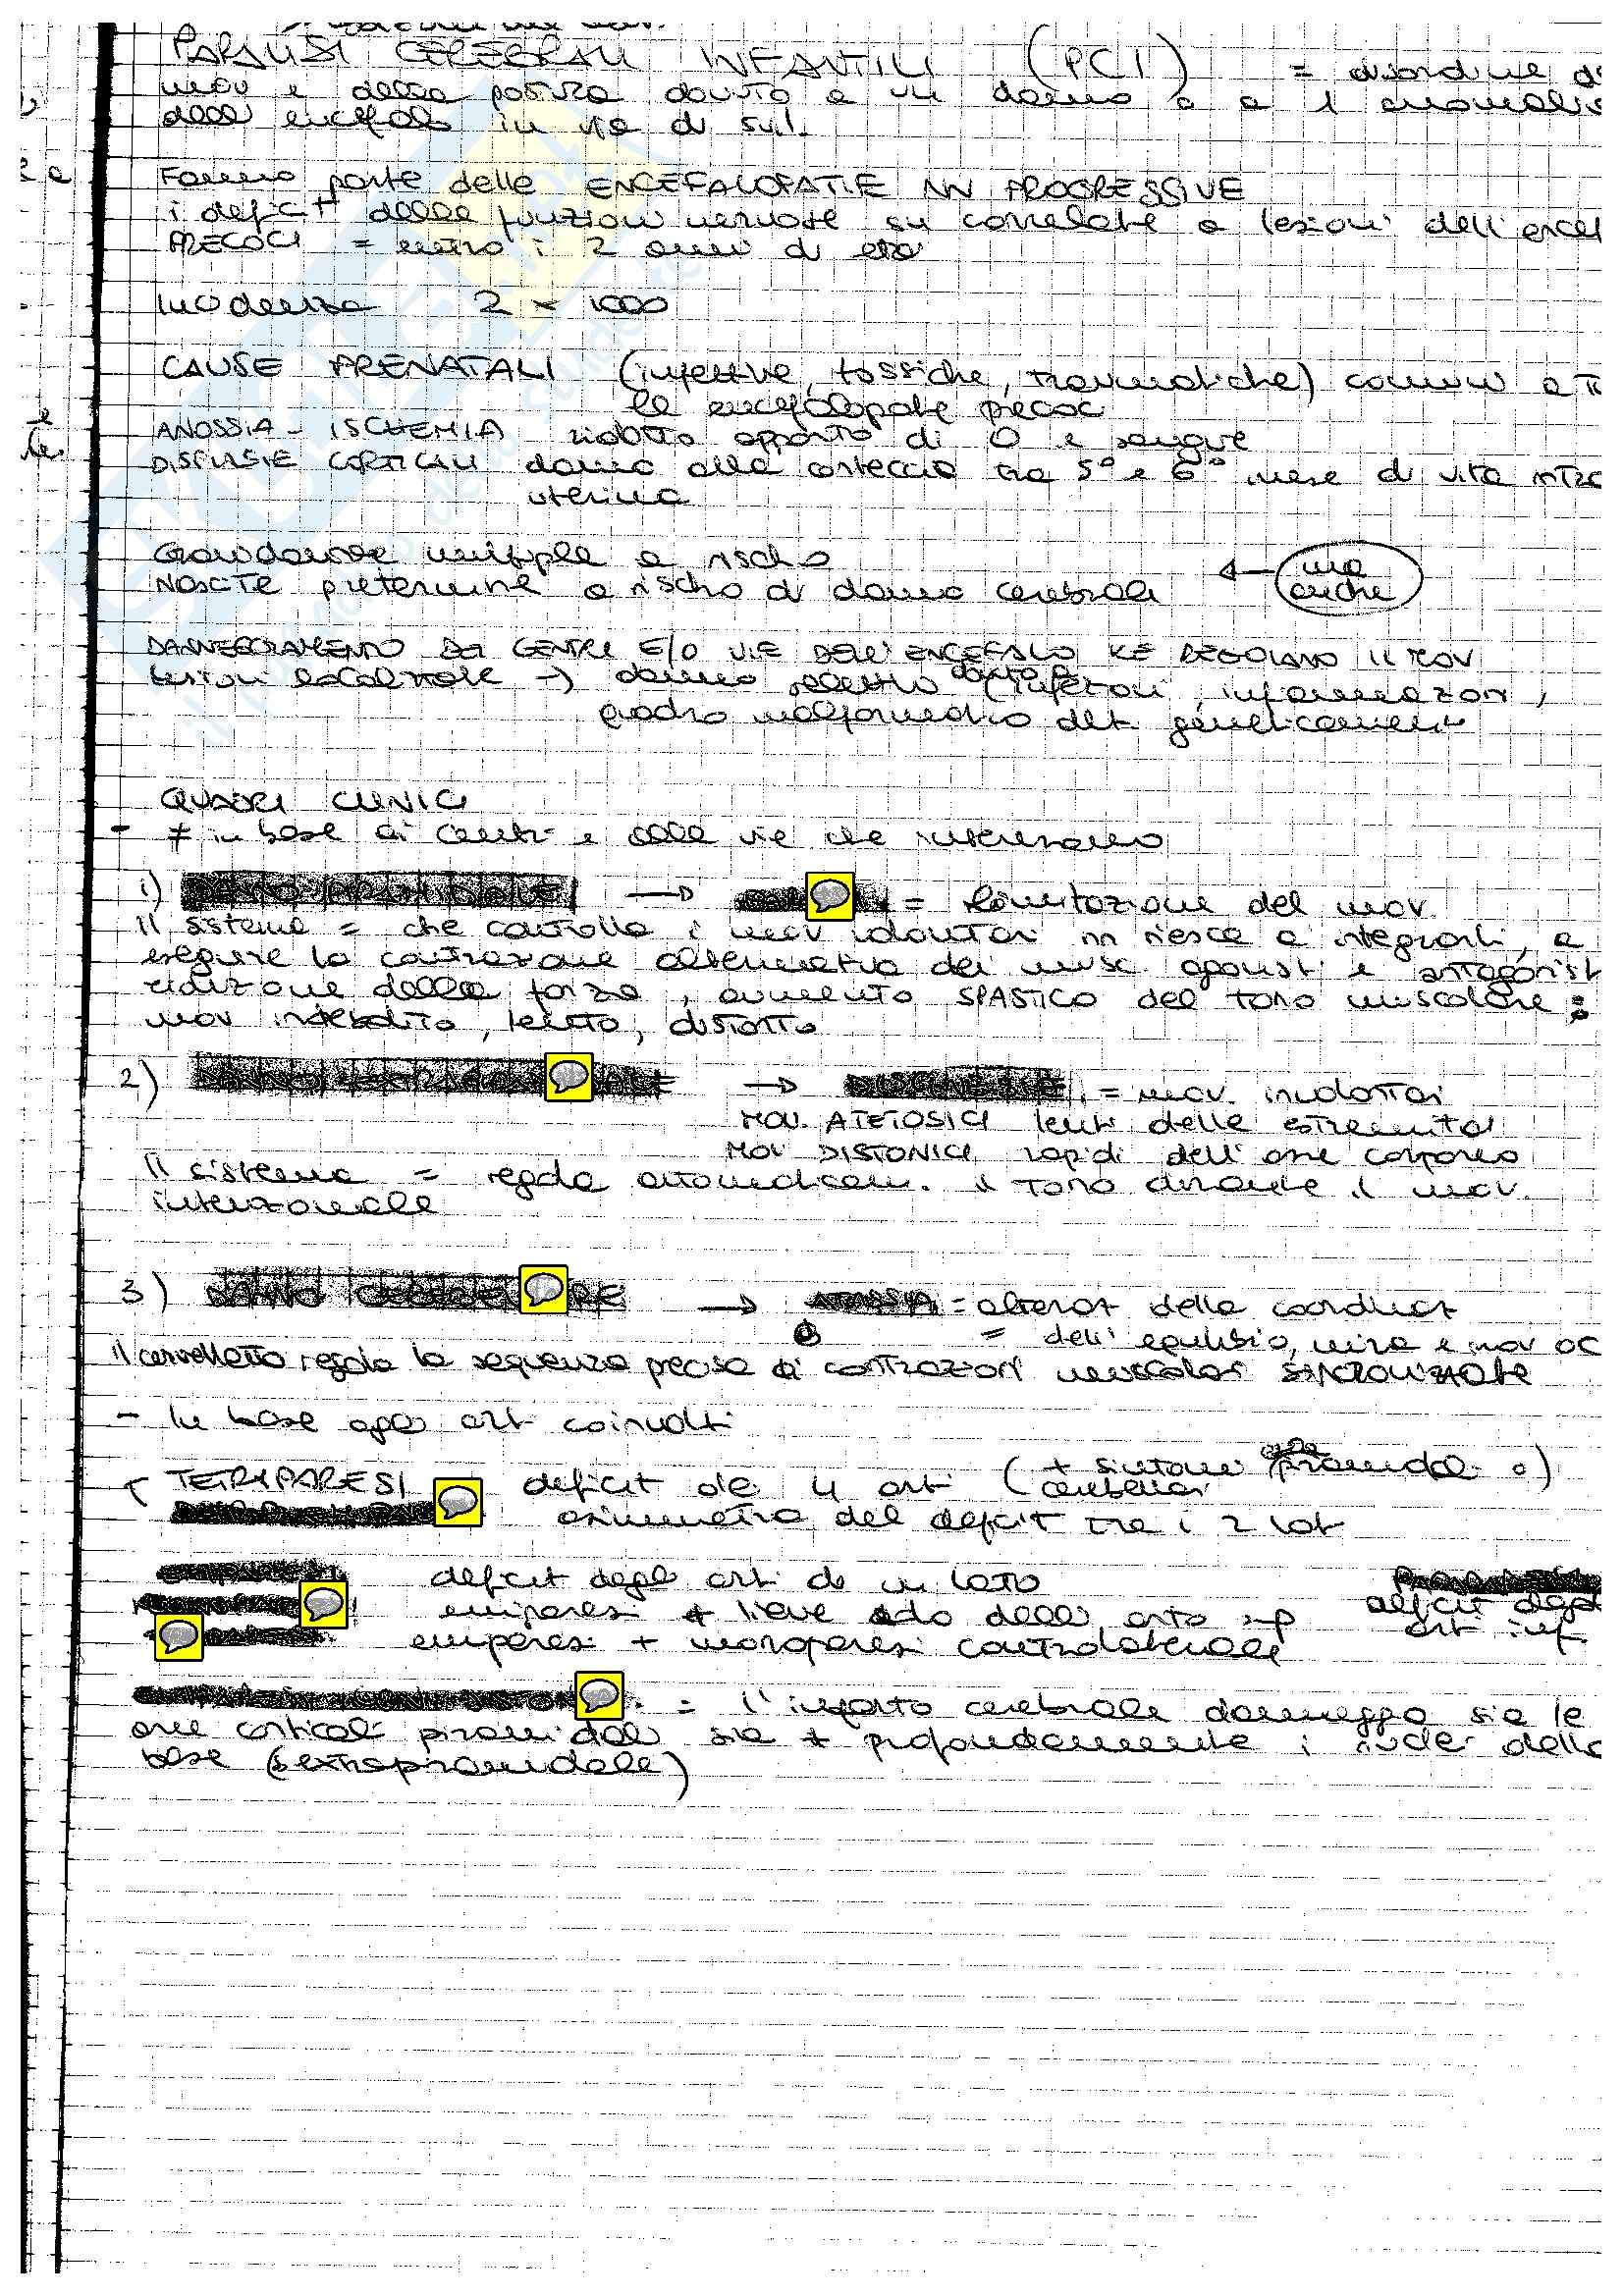 PARALISI CEREBRALI INFANTILI (PCI) = disordine d
mov e della postura dovuto a un danno o a 1 anomalia
dell'encefalo in via di svil.
Fanno parte delle ENCEFALOPATIE NN PROGRESSIVE
i deficit delle funzioni nervose su correlate a lesioni dell'encef
PRECOCI = entro i 2 anni di età
Incidenza 2 x 1000
CAUSE PRENATALI (infettive, tossiche, traumatiche) comuni a T
le encefalopatie precoci
ANOSSIA - ISCHEMIA ridotto apporto di O e sangue
DISPLASIE CORTICALI danno alla corteccia tra 5° e 6° mese di vita intra
uterina
Gravidanze multiple a rischio
NASCITE pretermine a rischio di danno cerebrale ma
anche
DANNEGGIAMENTO DEI CENTRI E/O VIE DELL'ENCEFALO KE REGOLANO IL MOV
Lesioni localizzate → danno selettivo dovuto a (infezioni, infiammazioni,
quadro malformativo det. geneticamente
QUADRI CLINICI
- ≠ in base ai centri e alle vie che interessano
1) DANNO PIRAMIDALE → = limitazione del mov
Il sistema = che controlla i mov volontari nn riesce a integrarli, a
eseguire la contrazione alternativa dei musc. agonisti e antagonist
riduzione della forza, aumento SPASTICO del tono muscolare:
mov inibito, lento, distorto
2) → DISCINESIE = mov. involontari
MOV. ATETOSICI lenti delle estremità
MOV DISTONICI rapidi dell'asse corporeo
Il sistema = regola automaticam. il tono durante il mov.
intenzionale
3) DANNO CEREBELLARE → ATASSIA = alteraz della coordinaz
= dell'equilibrio, mira e mov oc
Il cervelletto regola la sequenza precisa di contrazioni muscolari SINCRONIZZATE
- In base agli arti coinvolti
TETRAPARESI deficit dei 4 arti (+ sintomi piramidali o)
cerebellari
asimmetria del deficit tra i 2 lati
deficit degli arti di un lato
emiparesi + lieve do dell'arto sup deficit degli
emiparesi + monoparesi controlaterale art inf.
= l'infarto cerebrale danneggia sia le
aree corticali piramidali sia + profondamente i nuclei della
base (s extrapiramidale)